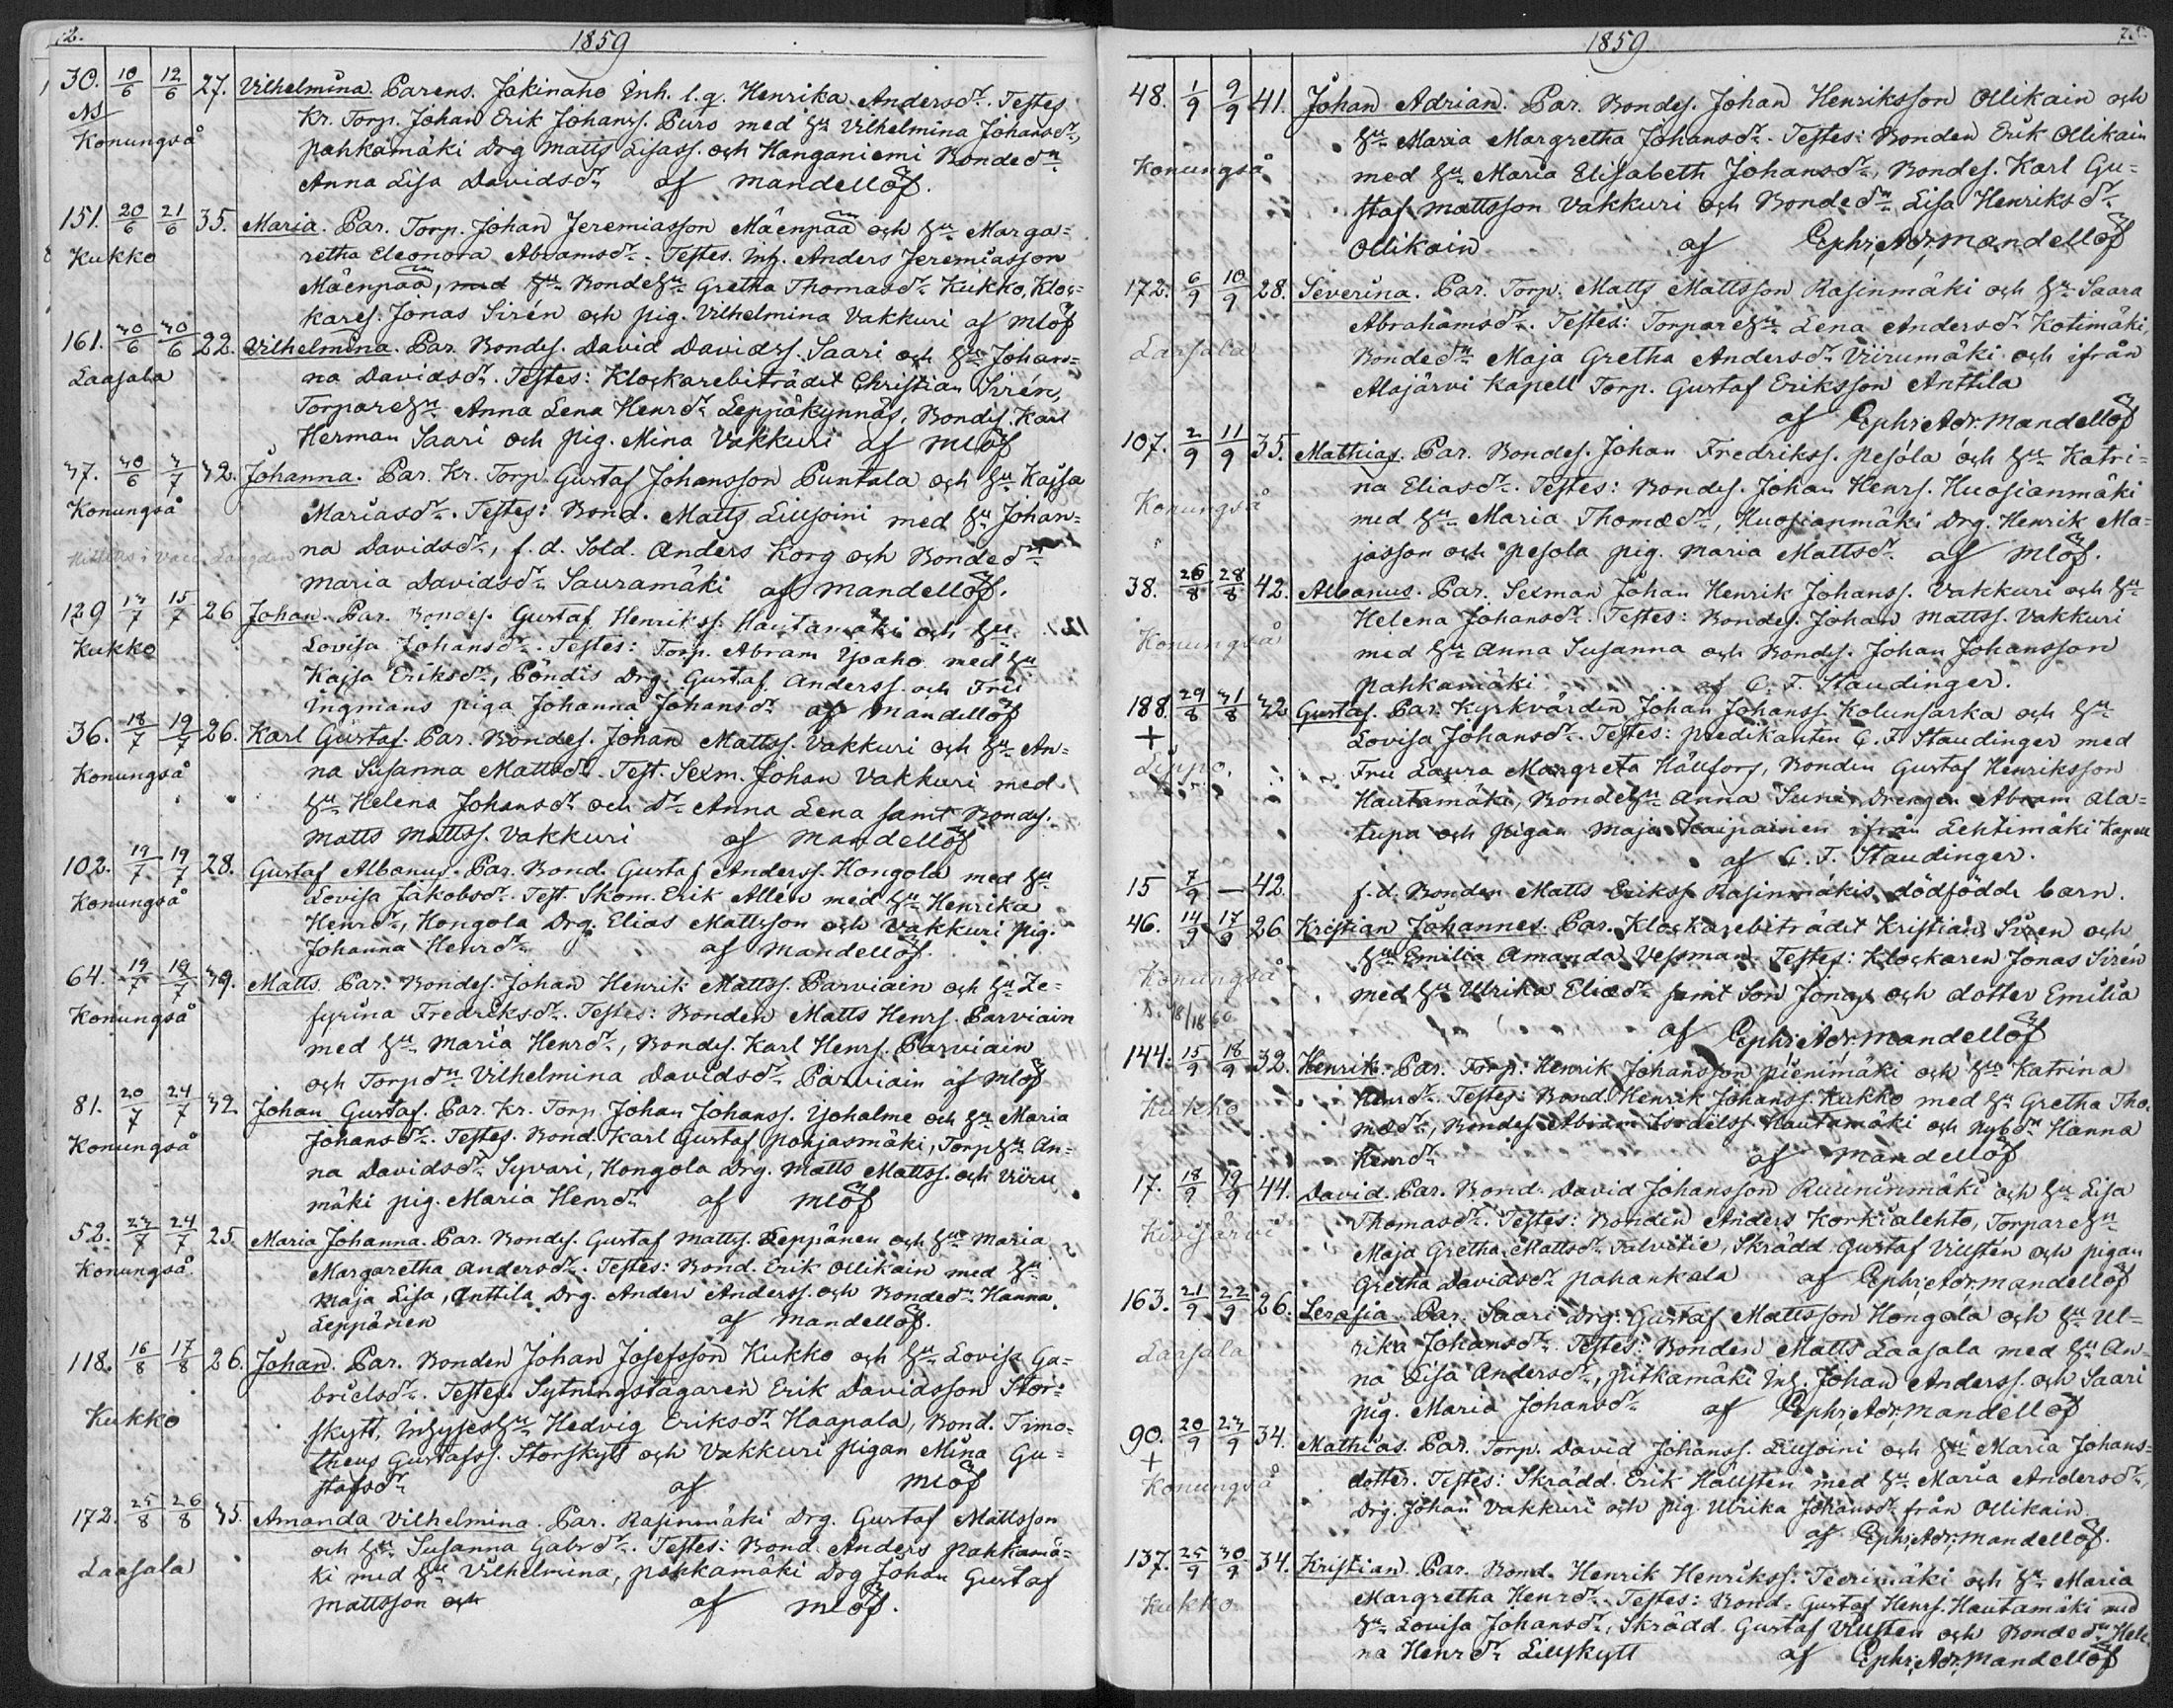 1859
30. 10/6 12/6 27. Vilhelmina. Parens. Jakinaho Inh. l.q. Henrika Andersdr. Testes
Kr. Torp. Johan Erik Johanss. Puro med hu Vilhelmina Johansdr.,
Konungså
pahkamäki Drg Matts Lisass. och Hanganiemi Bondedr.
Anna Lisa Davidsdr. af Mandellöf.
151. 20/6 21/6 35. Maria. Par. Torp. Johan Jeremiasson Mäenpää och hu Marga=
Kukko
retha Eleonora Abramsdr. Testes. Inh. Anders Jeremiasson
Mäenpää, med hu Bondehu Gretha Thomasdr. Kukko, Kloc=
kares. Jonas Sirén och pig. Vilhelmina Vakkuri af Mlöf
161. 30/6 30/6 22. Vilhelmina. Par. Bondes. David Davidss. Saari och hu Johan=
Laasala
na Davidsdr. Testes: Klockarebiträdet Christian Sirén,
Torparehu Anna Lena Henrdr. Leppäkynnäs, Bondes. Karl
Herman Saari och pig. Mina Vakkuri af Mlöf
37. 30/6 3/7 32. Johanna. Par. Kr. Torp. Gustaf Johansson Puntala och hu Kajsa
Konungså
Mariasdr. Testes: Bond. Matts Liusoini med hu Johan=
na Davidsdr., f.d. Sold. Anders Korg och Bondedr.
Maria Davidsdr. Sauramäki af Mandellöf.
129 13/7 15/7 26 Johan. Par. Bondes. Gustaf Henrikss. Hautamäki och hu
Kukko
Lovisa Johansdr. Testes: Torp. Abram Yoaho med hu
Kajsa Eriksdr., Pöndis Drg. Gustaf Anderss. och Fru
Ingmans piga Johanna Johansdr. af Mandellöf
36. 18/7 19/7 26. Karl Gustaf. Par. Bondes. Johan Mattss. Vakkuri och hu An=
Konungså
na Susanna Mattsdr. Test. Sexm. Johan Vakkuri med
hu Helena Johansdr. och dr. Anna Lena samt Bondes.
Matts Mattss. Vakkuri af Mandellöf
102. 19/7 19/7 28. Gustaf Albanus. Par. Bond. Gustaf Anderss. Hongola med hu
Konungså
Lovisa Jakobsdr. Test. Skom. Erik Allén med hu Henrika
Henrdr., Hongola Drg. Elias Mattsson och Vakkuri pig.
Johanna Henrdr. af Mandellöf.
64. 19/7 19/7 39. Matts. Par. Bondes. Johan Henrik Mattss. Parviain och hu Ze=
Konungså
fyrina Fredriksdr. Testes: Bonden Matts Henrs. Parviain
med hu Maria Henrdr., Bondes. Karl Henrs. Parviain
och Torpdr. Vilhelmina Davidsdr. Parviain af Mlöf
81. 20/7 24/7 32. Johan Gustaf. Par. Kr. Torp. Johan Johanss. Yoholme och hu Maria
Konungså
Johansdr. Testes. Bond. Karl Gustaf Pohjasmäki, Torphu An=
na Davidsdr. Syvari, Hongola Drg. Matts Mattss. och Viiru
mäki pig. Maria Henrdr. af Mlöf
52. 23/7 24/7 25 Maria Johanna. Par. Bondes. Gustaf Mattss. Leppänen och hu Maria
Konungså
Margaretha Andersdr. Testes: Bond. Erik Ollikain med hu
Maja Lisa, Anttila Drg. Anders Anderss. och Bondedr. Hanna
Leppänen af Mandellöf.
118. 16/8 17/8 26. Johan. Par. Bonden Johan Josefsson Kukko och hu Lovisa Ga=
brielsdr. Testes. Sytningstagaren Erik Davidsson Stor=
Kukko
skytt, Inhyseshu Hedvig Eriksdr. Haapala, Bond. Timo=
theus Gustafss. Storskytt och Vakkuri pigan Mina Gu=
stafsdr. af Mlöf
172. 25/8 26/8 35. Amanda Vilhelmina. Par. Rasinmäki Drg. Gustaf Mattsson
och hu Susanna Gabrdr. Testes: Bond. Anders pahkamä=
Laasala
ki med hu Vilhelmina, pahkamäki Drg Johan Gustaf
Mattsson och af Mlöf.
1859
48. 1/9 9/9 41. Johan Adrian. Par. Bondes. Johan Henriksson Ollikain och
hu Maria Margretha Johansdr. Testes: Bonden Erik Ollikain
Konungså
med hu Maria Elisabeth Johansdr., Bondes. Karl Gu=
staf Mattsson Vakkuri och Bondedr. Lisa Henriksdr.
Ollikain af Ephr. Adr. Mandellöf
172. 6/9 10/9 28. Severina. Par. Torp. Matts Mattsson Rasinmäki och hu Saara
Abrahamsdr. Testes: Torparehu Lena Andersdr. Kotimäki,
Laasala
Bondedr. Maja Gretha Andersdr. Viirumäki och ifrån
Alajärvi Kapell Torp. Gustaf Eriksson Anttila
af Ephr. Adr. Mandellöf
107. 2/9 11/9 35. Mathias. Par. Bondes. Johan Fredrikss. pesola och hu Katri=
na Eliasdr. Testes: Bondes. Johan Henrs. Huosianmäki
Konungså
med hu Maria Thomædr., Huosianmäki Drg. Henrik Ma=
jasson och pesola pig. Maria Mattsdr. af Mlöf.
38. 26/8 28/8 42. Albanus. Par. Sexman Johan Henrik Johanss. Vakkuri och hu
Helena Johansdr. Testes: Bondes. Johan Mattss. Vakkuri
Konungså
med hu Anna Susanna och Bondes. Johan Johansson
pahkamäki af C. F. Staudinger.
188. 29/8 31/8 32 Gustaf. Par. Kyrkvärden Johan Johanss. Kolunsarka och hu
+
Lovisa Johansdr. Testes: predikanten C. F. Staudinger med
Lippo.
Fru Laura Margreta Hällfors, Bonden Gustaf Henriksson
Hautamäki, Bondehu Anna Suni, Drengen Abram Ala=
tupa och pigan Maja Kaipainen ifrån Lehtimäki Kapell
af C. F. Staudinger.
15 7/9 — 42. f.d. Bonden Matts Erikss. Rasinmäkis dödfödde barn.
46. 14/9 17/9 26 Kristian Johannes. Par. Klockarebiträdet Kristian Siren och
hu Emilia Amanda Vessman. Testes: Klockaren Jonas Sirén
Konungså
med hu Ulrika Eliædr. samt Son Jonas och dotter Emilia
af Ephr. Adr. Mandellöf
144. 15/9 18/9 32. Henrik. Par. Torp. Henrik Johansson pienimäki och hu Katrina
Kukko
Henrdr. Testes: Bond. Henrik Johanss. Kukko med hu Gretha Tho=
mædr., Bondes. Abram Israelss. Hautamäki och Nybdr. Hanna
Henrdr. af Mandellöf
17. 18/9 19/9 44. David. Par. Bond. David Johansson Ruuninmäki och hu Lisa
Kivijärvi
Thomasdr. Testes: Bonden Anders Korkialehto, Torparehu
Maja Gretha Mattsdr. Talvitie, Skrädd. Gustaf Villstén och pigan
Gretha Davidsdr. pahankala af Ephr. Adr. Mandellöf
163. 21/9 22/9 26. Serafia. Par. Saari Drg. Gustaf Mattsson Hongola och hu Ul=
Laasala
rika Johansdr. Testes: Bonden Matts Laasala med hu An=
na Lisa Andersdr., pitkämäki Inh. Johan Anderss. och Saari
pig. Maria Johansdr. af Ephr. Adr. Mandellöf
90. 20/9 23/9 34. Mathias. Par. Torp. David Johanss. Liusoini och hu Maria Johans=
+
dotter. Testes: Skrädd. Erik Hällsten med hu Maria Andersdr.,
Konungså
Drg. Johan Vakkuri och pig. Ulrika Johansdr. från Ollikain.
af Ephr. Adr. Mandellöf.
137. 25/9 30/9 34. Kristian. Par. Bond. Henrik Henrikss. Teerimäki och hu Maria
Kukko
Margretha Henrdr. Testes: Bond. Gustaf Henrs. Hautamäki med
hu Lovisa Johansdr., Skrädd. Gustaf Villsten och Bondedr. Hele
na Henrdr. Lillskytt af Ephr. Adr. Mandellöf